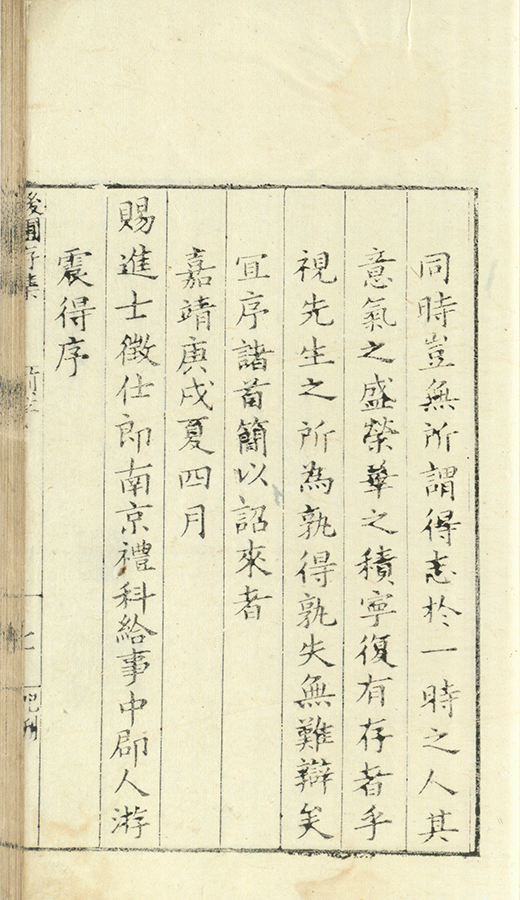 同時豈無所謂得志於一時之人其
意氣之盛榮華之積寧復有存者乎
視先生之所為孰得孰失無難辯矣
宜序諸首簡以詔來者
嘉靖庚戌夏四月
賜進士徵仕郎南京禮科給事中郡人游
震得序